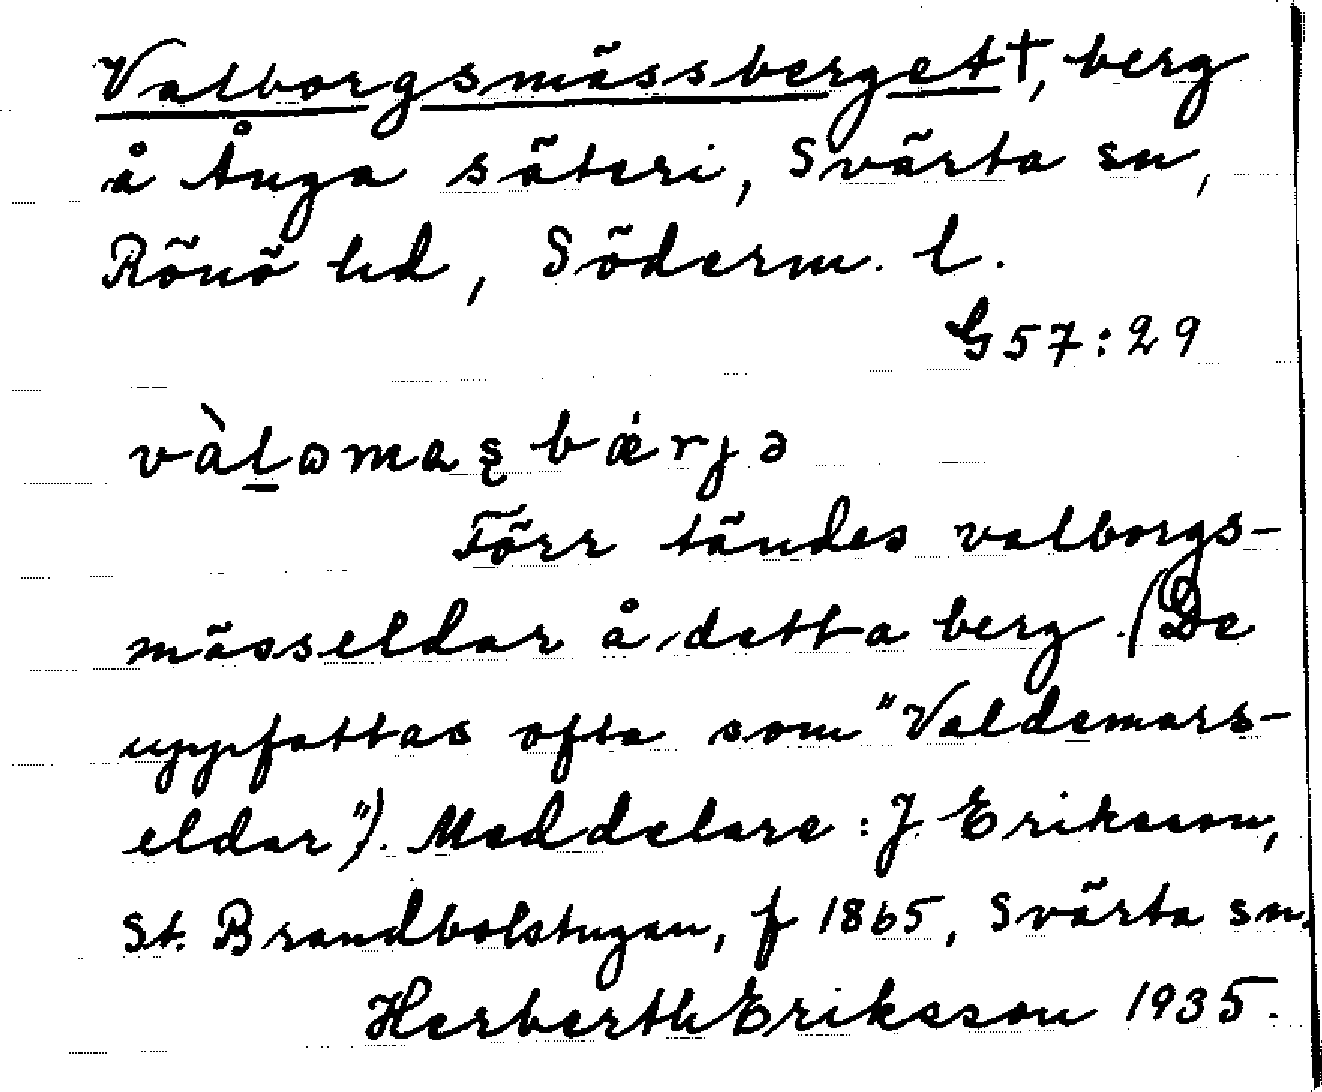 Valborgsmässberget†, berg
å Ånga säteri, Svärta sn,
Rönö hd, Söderm. l.
G57:29
vàl̲ɷmaʂbǽrjə
Förr tändes valborgs-
mässeldar å detta berg. (De
uppfattas ofta som "Valdemars-
eldar"). Meddelare: J Eriksson,
St. Brandbolstugan, f 1865, Svärta sn.
Herberth Eriksson 1935.